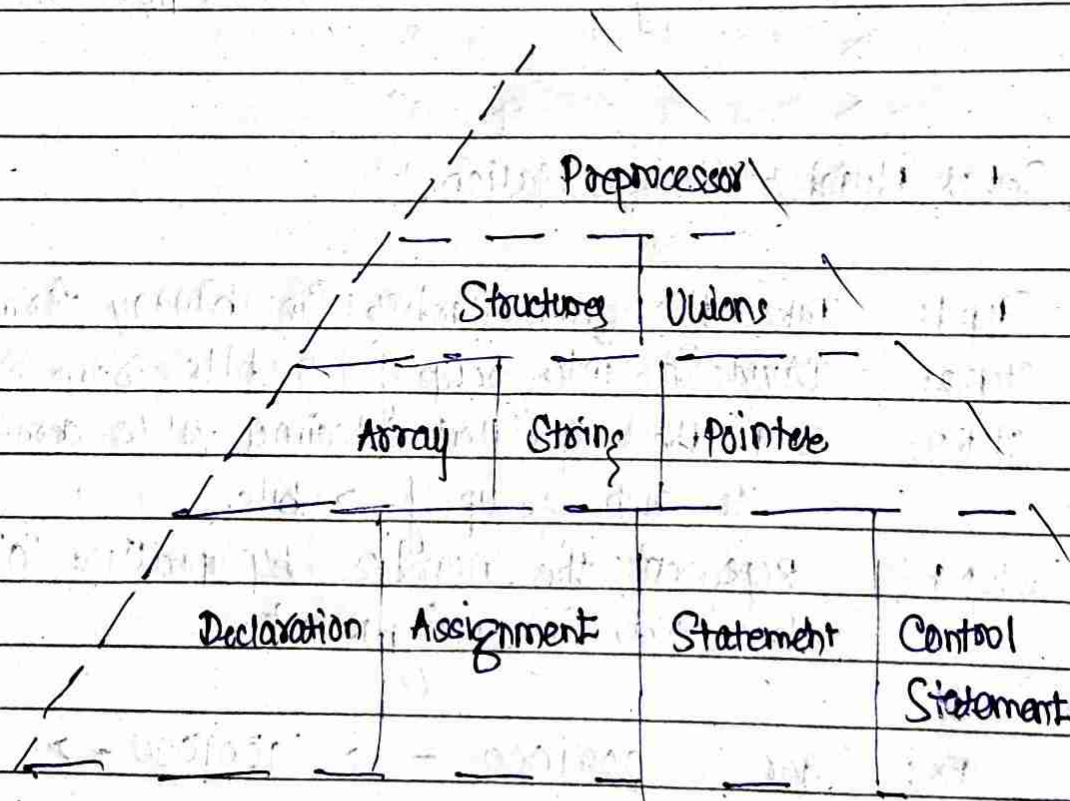 Preprocessor
Structures Unions
Array String Pointers
Declaration Assignment Statement Control
Statement